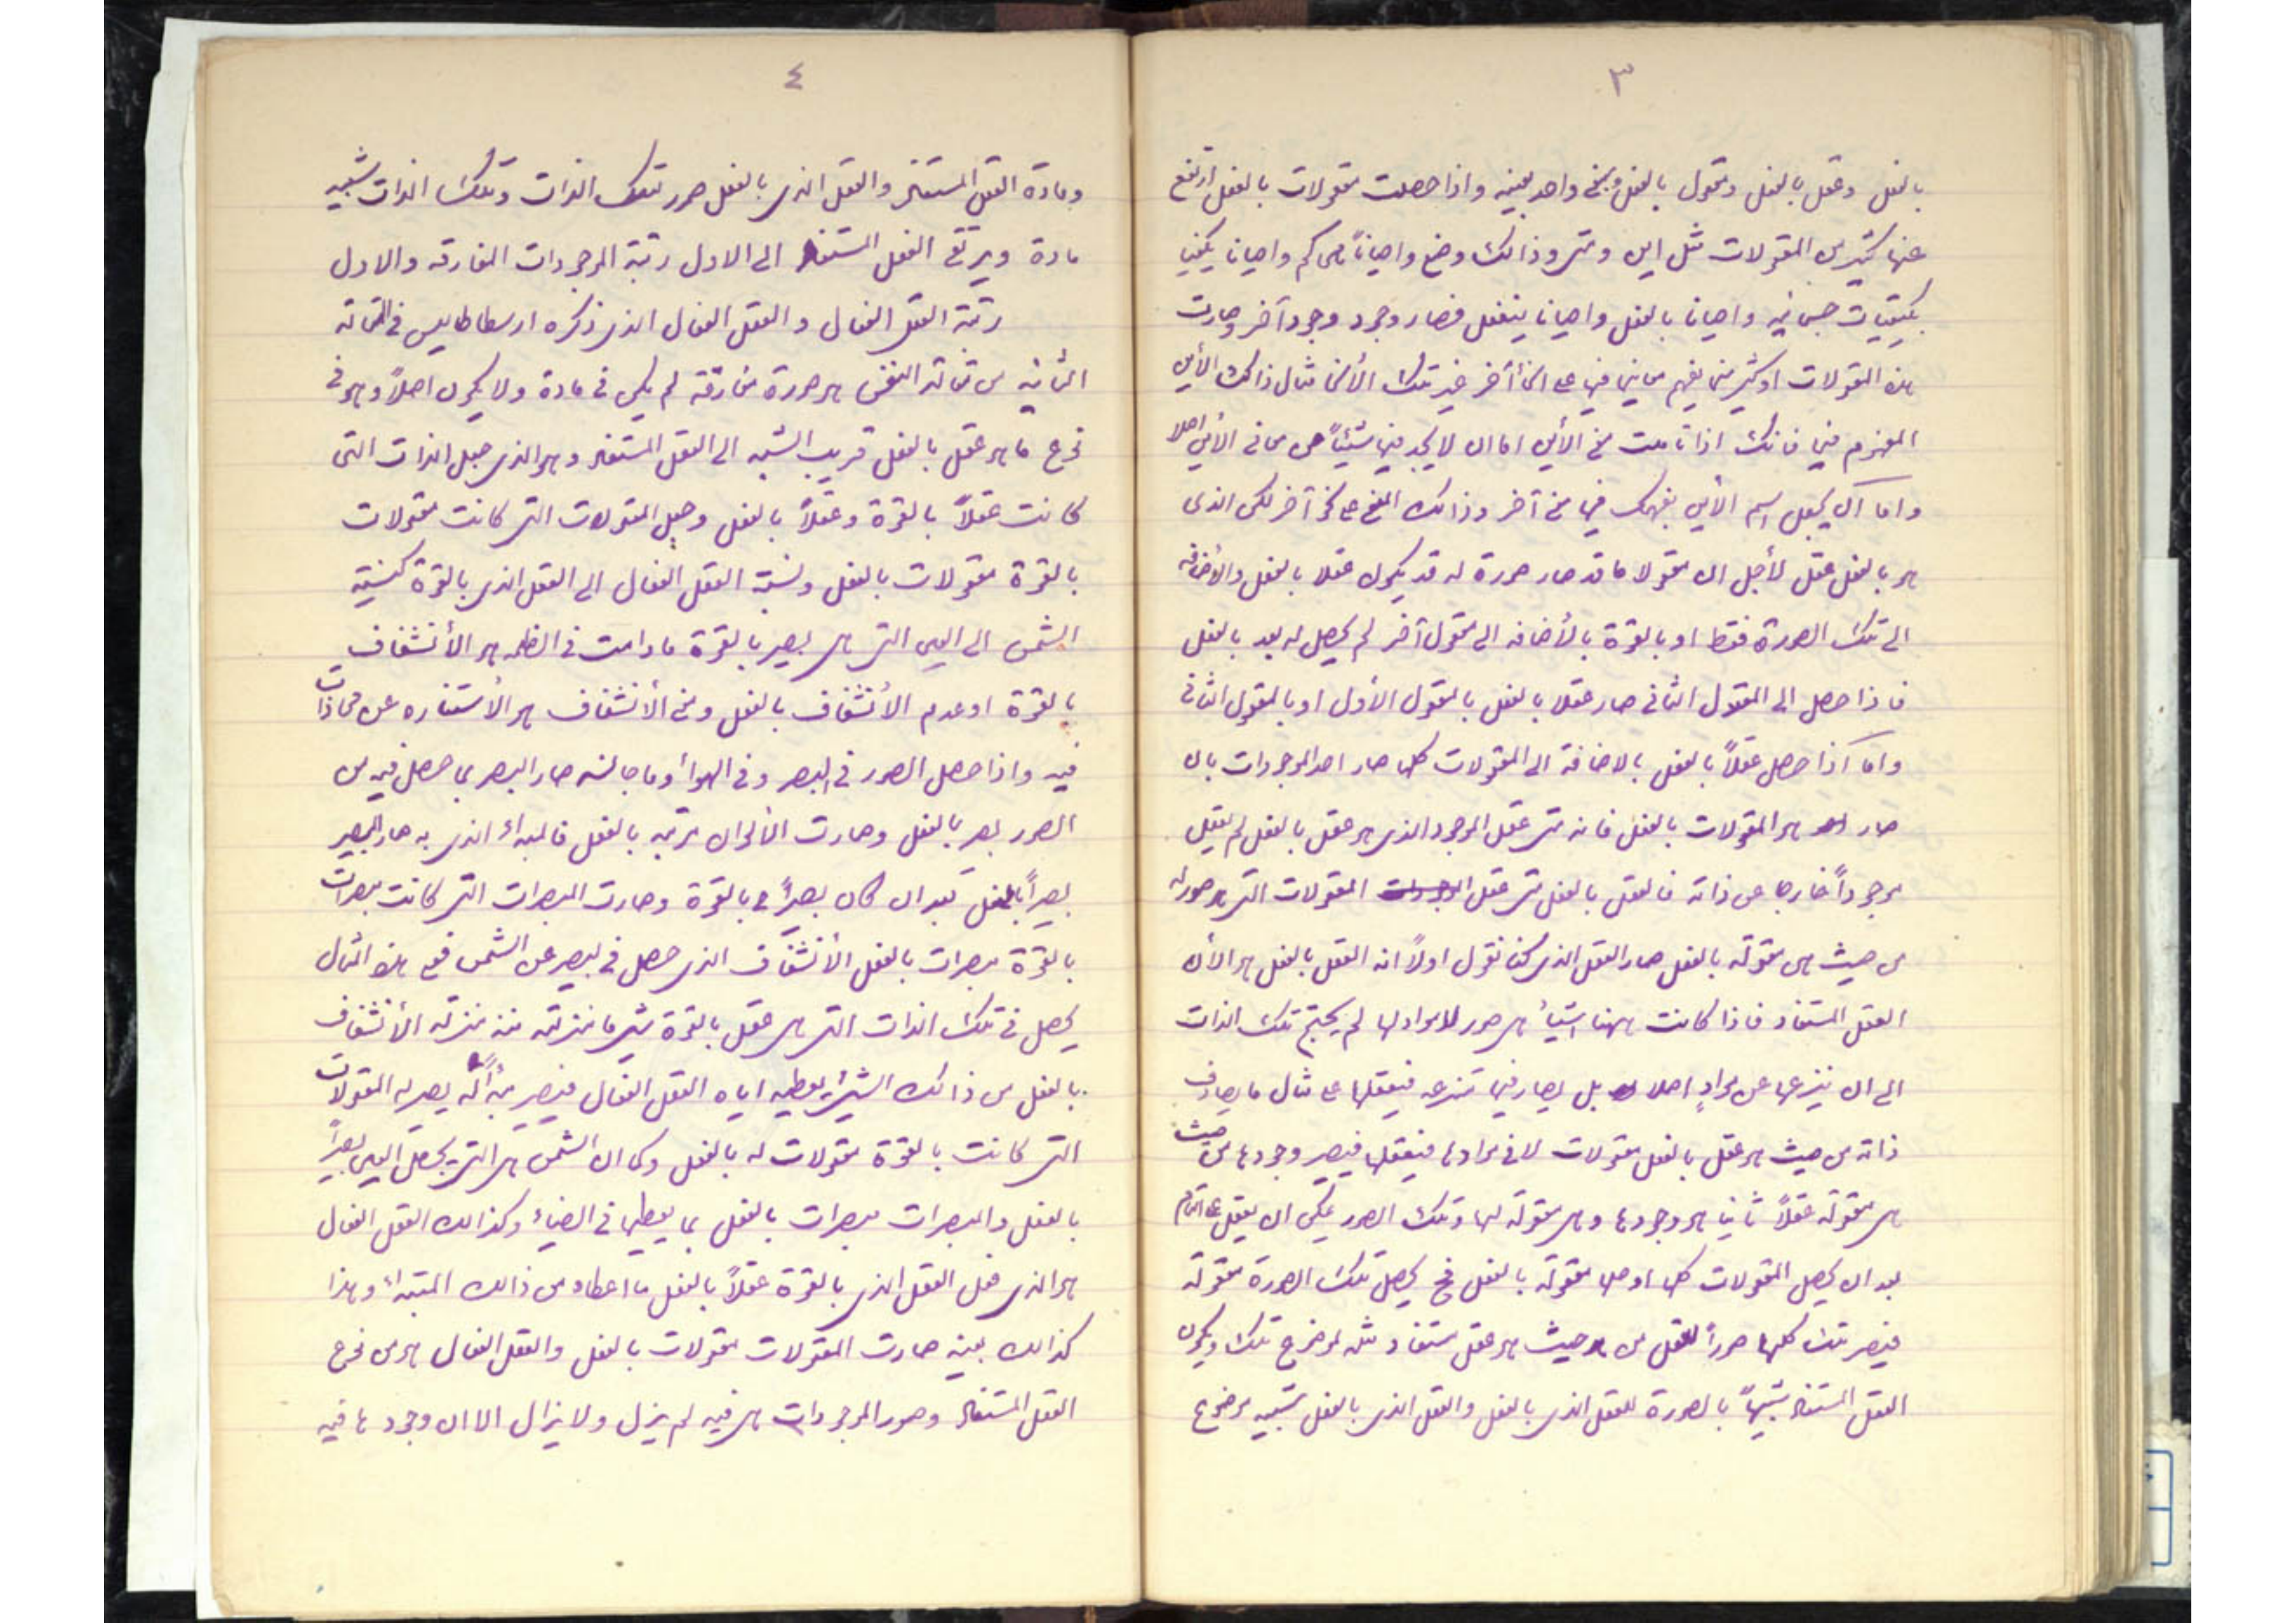 ٣
بالفعل وعقل بالفعل ومعقول بالفعل ومعنى واحد بعينه واذا حصلت معقولات بالفعل ارتفع
عنها كثير من المقولات مثل اين ومتى وذالك وضع واحياناً هى كم واحيانا يكيف
بكيفيات جسمانيه واحيانا بالفعل واحيانا ينفعل فصار وجود وجوداً آخر وصارت
هذه المقولات او كثير منها يفهم معانيها فيها على انحأ أخر غير تلك الأنحا مثال ذالك الأين
المفهوم فيها فانك اذا تأملت معنى الأين اما ان لا يجد فيها شيئاً من معانى الأين اصلا
واما آن يجعل اسم الأين يفهمك فيها معنى آخر وذالك المعنى على نحو آخر لكن الذى
هو بالفعل عقل لأجل ان معقولا ما قد صار صورة له قد يكون عقلا بالفعل والأضافه
الى تلك الصورة فقط او بالقوة بالأضافه الى معقول آخر لم يحصل له بعد بالفعل
فاذا حصل الى المعقول الثانى صار عقلا بالفعل بالمعقول الأول او بالمعقول الثانى
واما آذا حصل عقلاً بالفعل بالاضافة الى المعقولات كلها صار احد الموجودات بان
صار هو المعقولات بالفعل فانه متى عقل الموجود الذى هو عقل بالفعل لم يعقل
موجوداً خارجا عن ذاته فالعقل بالفعل متى عقل المعقولات التى هو صور له
من حيث هى معقولة بالفعل صار العقل الذى كنا نقول اولاً انه العقل بالفعل هو الأن
العقل المستفاد فاذا كانت ههنا اشيأ هى صور لا مواد لها لم يحتج تلك الذات
الى ان ينزعها عن مواد اصلا بل يصادفها منتزعه فيعقلها على مثال ما يصادف
ذاته من حيث هو عقل بالفعل معقولات لا فى موادها فيعقلها فيصير وجودها من حيث
هى معقولة عقلاً ثانيا هو وجودها وهى معقولة لها وتلك الصور يمكن ان يعقل على التمام
بعد ان يحصل المعقولات كلها او جلها معقولة بالفعل فح يحصل تلك الصورة معقولة
فيصير تلك كلها صوراً للعقل من حيث هو عقل مستفاد مثله لموضوع تلك ويكون
العقل المستفاد شبيهاً بالصورة للعقل الذى بالفعل والعقل الذى بالفعل شبيه موضوع
٤
ومادة العقل المستفاد والعقل الذى بالفعل صور لتلك الذات وتلك الذات شبيه
مادة ويرتقى العقل المستفاد الى الاول رتبة الموجودات المفارقه والاول
رتبة العقل الفعال والعقل الفعال الذى ذكره ارسطاطاليس فى المقالة
الثانيه من مقالة النفس هو صورة مفارقة لم يكن فى مادة ولا يكون اصلاً وهو فى
نوع ما هو عقل بالفعل قريب الشبه الى العقل المستفاد وهو الذى جعل الذات التى
كانت عقلاً بالقوة وعقلاً بالفعل وجعل المعقولات التى كانت معقولات
بالقوة معقولات بالفعل ونسبة العقل الفعال الى العقل الذى بالقوة كنسبة
الشمس الى العين التى هى بصير بالقوة مادامت فى الظلمه هو الأنشفاف
بالقوة او عدم الأنشفاف بالفعل ومعنى الأنشفاف هو الأستناره عن محاذات
فيه واذا حصل الصور فى البصر وفى الهوأ وما جانسه صار البصر بما حصل فيه من
الصور بصر بالفعل وصارت الألوان مرئيه بالفعل فالمبدأ الذى به صار البصير
بصيراً بالفعل بعد ان كان بصيراً بالقوة وصارت المبصرات التى كانت مبصرات
بالقوة مبصرات بالفعل الأنشفاف الذى حصل فى لبصر عن الشمس فعلى هذا المثال
يحصل فى تلك الذات التى هى عقل بالقوة شى ما منزلته منه منزلة الأنشفاف
بالفعل من ذالك الشئ يعطيه اياه العقل الفعال فيصير مبدأ له يصير له المعقولات
التى كانت بالقوة معقولات له بالفعل وكما ان الشمس هى التى يجعل العين بصيراً
بالفعل والمبصرات مبصرات بالفعل بما يعطيها فى الضياء وكذالك العقل الفعال
هو الذى فعل العقل الذى بالقوة عقلاً بالفعل ما اعطاه من ذالك المبدأ وبهذا
كذالك بعينه صارت المعقولات معقولات بالفعل والعقل الفعال هو من نوع
العقل المستفاد وصور الموجودات هى فيه لم يزل ولا يزال الا ان وجودها فيه